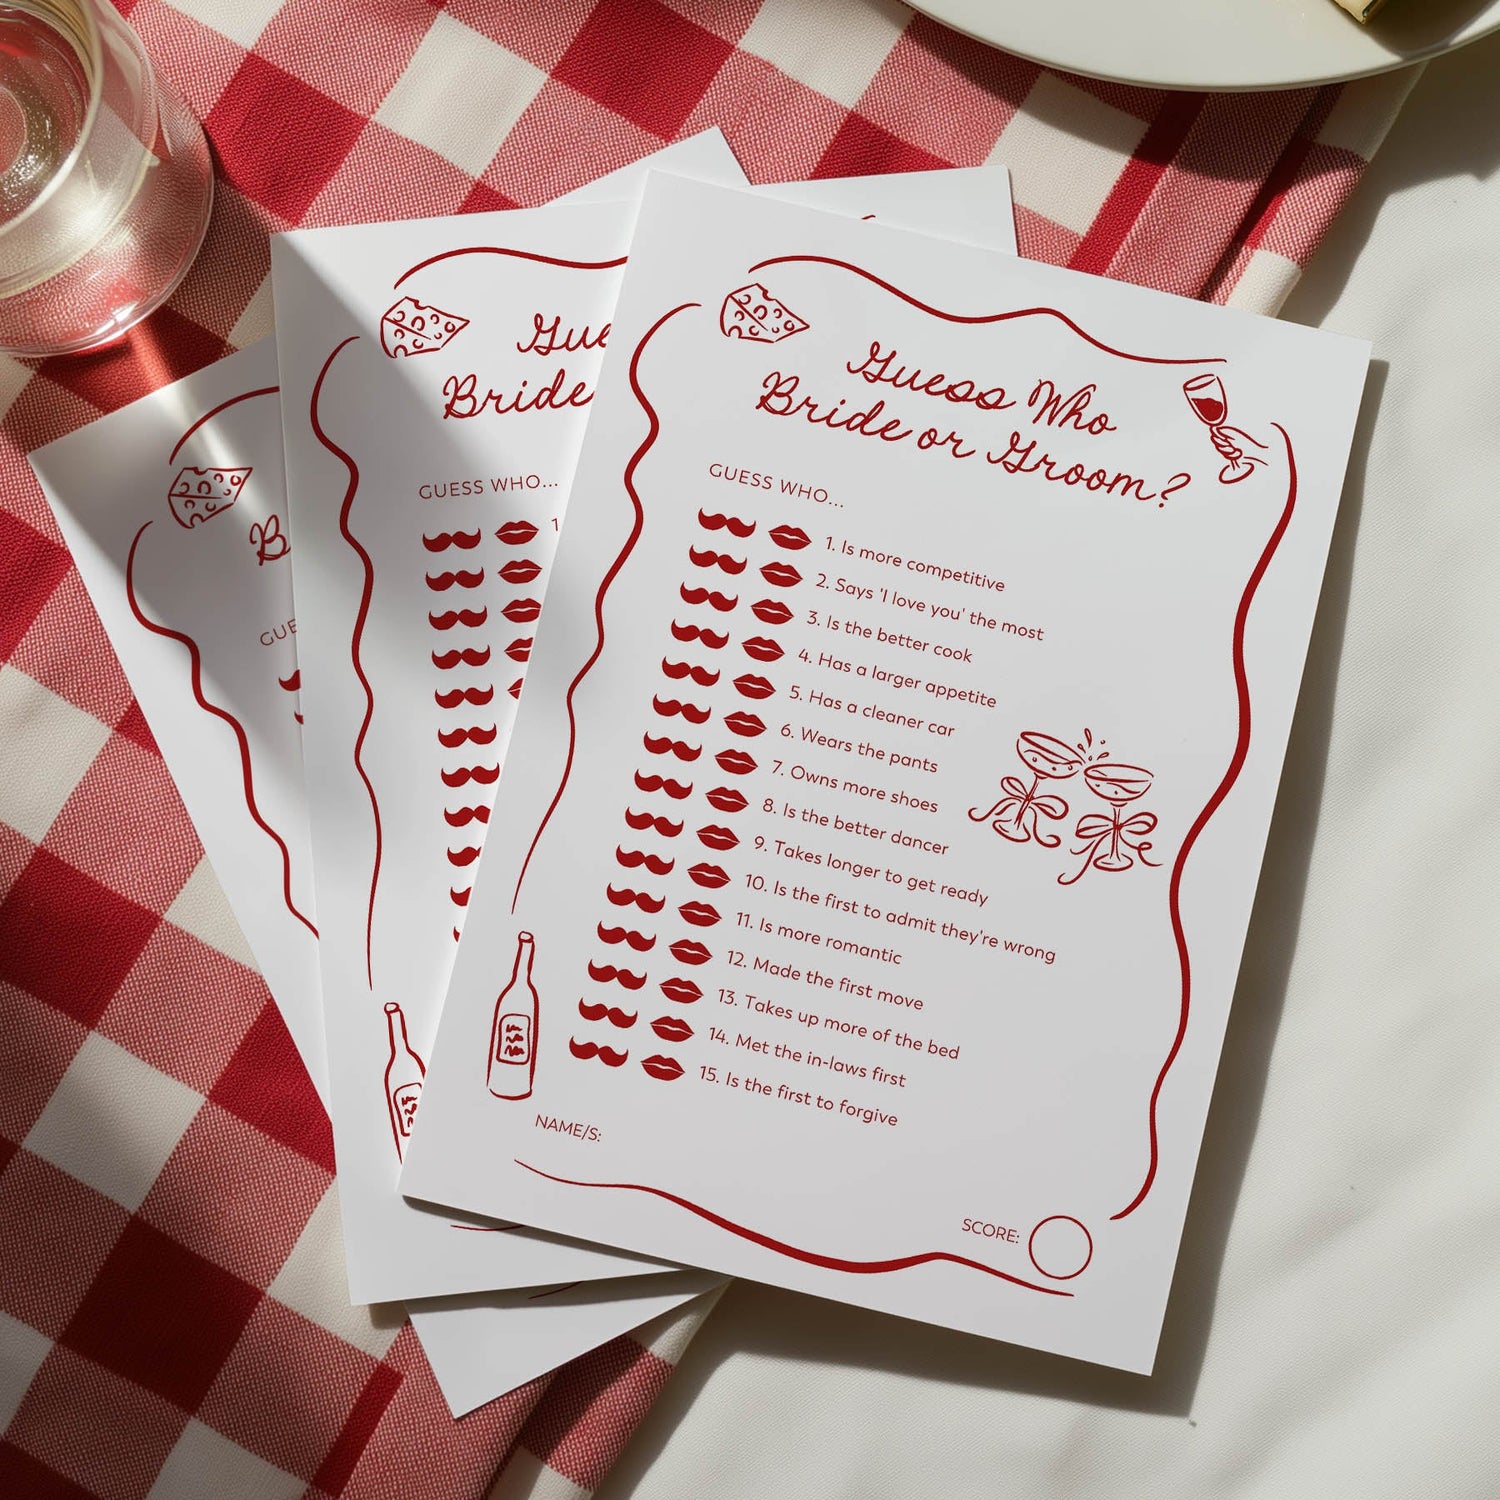 Guess Who
Bride or Groom?
GUESS WHO...
1. Is more competitive
2. Says 'I love you' the most
3. Is the better cook
4. Has a larger appetite
5. Has a cleaner car
6. Wears the pants
7. Owns more shoes
8. Is the better dancer
9. Takes longer to get ready
10. Is the first to admit they're wrong
11. Is more romantic
12. Made the first move
13. Takes up more of the bed
14. Met the in-laws first
15. Is the first to forgive
NAME/S:
SCORE:
Gue
Bride
GUESS WHO...
1
B
GUE